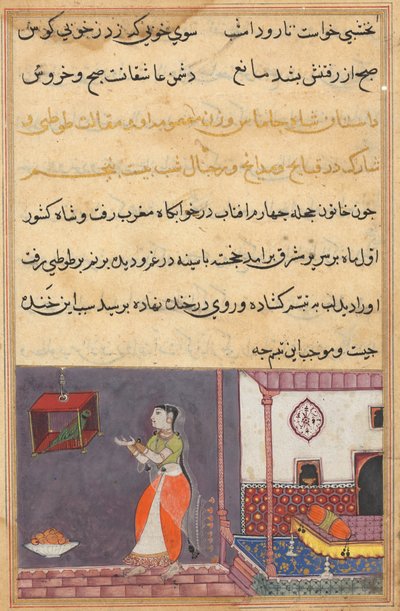 نخشبی خواست تا رود امشب سوی خوبی که زد ز خوبی کوس
صبح از رفتنش بشد مانع دشمن عاشقانست صبح و خروس
داستان شاه و مقالت طوطی و
شارک در قبایح و رجال شب بیست پنجم
چون خاتون حجله چهارم افتاب در خوابکاه مغرب رفت و شاه کشور
اول ماه بر سریر مشرق برآمد خجسته با سینه دیده پرنم بر طوطی رفت
او را دید لب به تبسم کشاده و روی در خنده نهاده پرسید سبب این خنده
چیست و موجب این تبسم چه